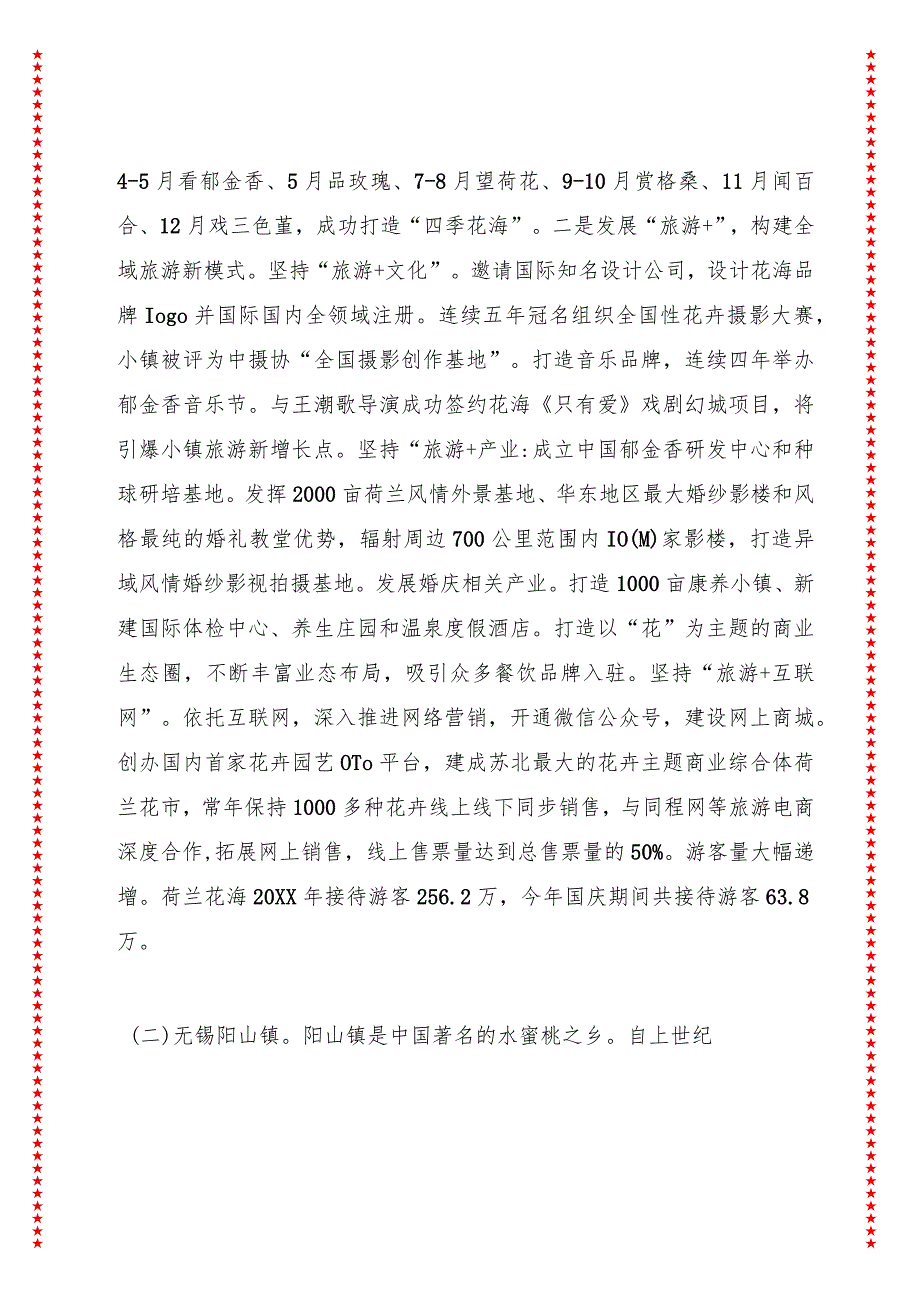 4-5月看郁金香、5月品玫瑰、7-8月望荷花、9-10月赏格桑、11月闻百
合、12月戏三色堇，成功打造“四季花海”。二是发展“旅游+”，构建全
域旅游新模式。坚持“旅游+文化”。邀请国际知名设计公司，设计花海品
牌Iogo并国际国内全领域注册。连续五年冠名组织全国性花卉摄影大赛，
小镇被评为中摄协“全国摄影创作基地”。打造音乐品牌，连续四年举办
郁金香音乐节。与王潮歌导演成功签约花海《只有爱》戏剧幻城项目，将
引爆小镇旅游新增长点。坚持“旅游+产业:成立中国郁金香研发中心和种
球研培基地。发挥2000亩荷兰风情外景基地、华东地区最大婚纱影楼和风
格最纯的婚礼教堂优势，辐射周边700公里范围内IO(M)家影楼，打造异
域风情婚纱影视拍摄基地。发展婚庆相关产业。打造1000亩康养小镇、新
建国际体检中心、养生庄园和温泉度假酒店。打造以“花”为主题的商业
生态圈，不断丰富业态布局，吸引众多餐饮品牌入驻。坚持“旅游+互联
网”。依托互联网，深入推进网络营销，开通微信公众号，建设网上商城。
创办国内首家花卉园艺OTo平台，建成苏北最大的花卉主题商业综合体荷
兰花市，常年保持1000多种花卉线上线下同步销售，与同程网等旅游电商
深度合作,拓展网上销售，线上售票量达到总售票量的50%。游客量大幅递
增。荷兰花海20XX年接待游客256.2万，今年国庆期间共接待游客63.8
万。
(二)无锡阳山镇。阳山镇是中国著名的水蜜桃之乡。自上世纪